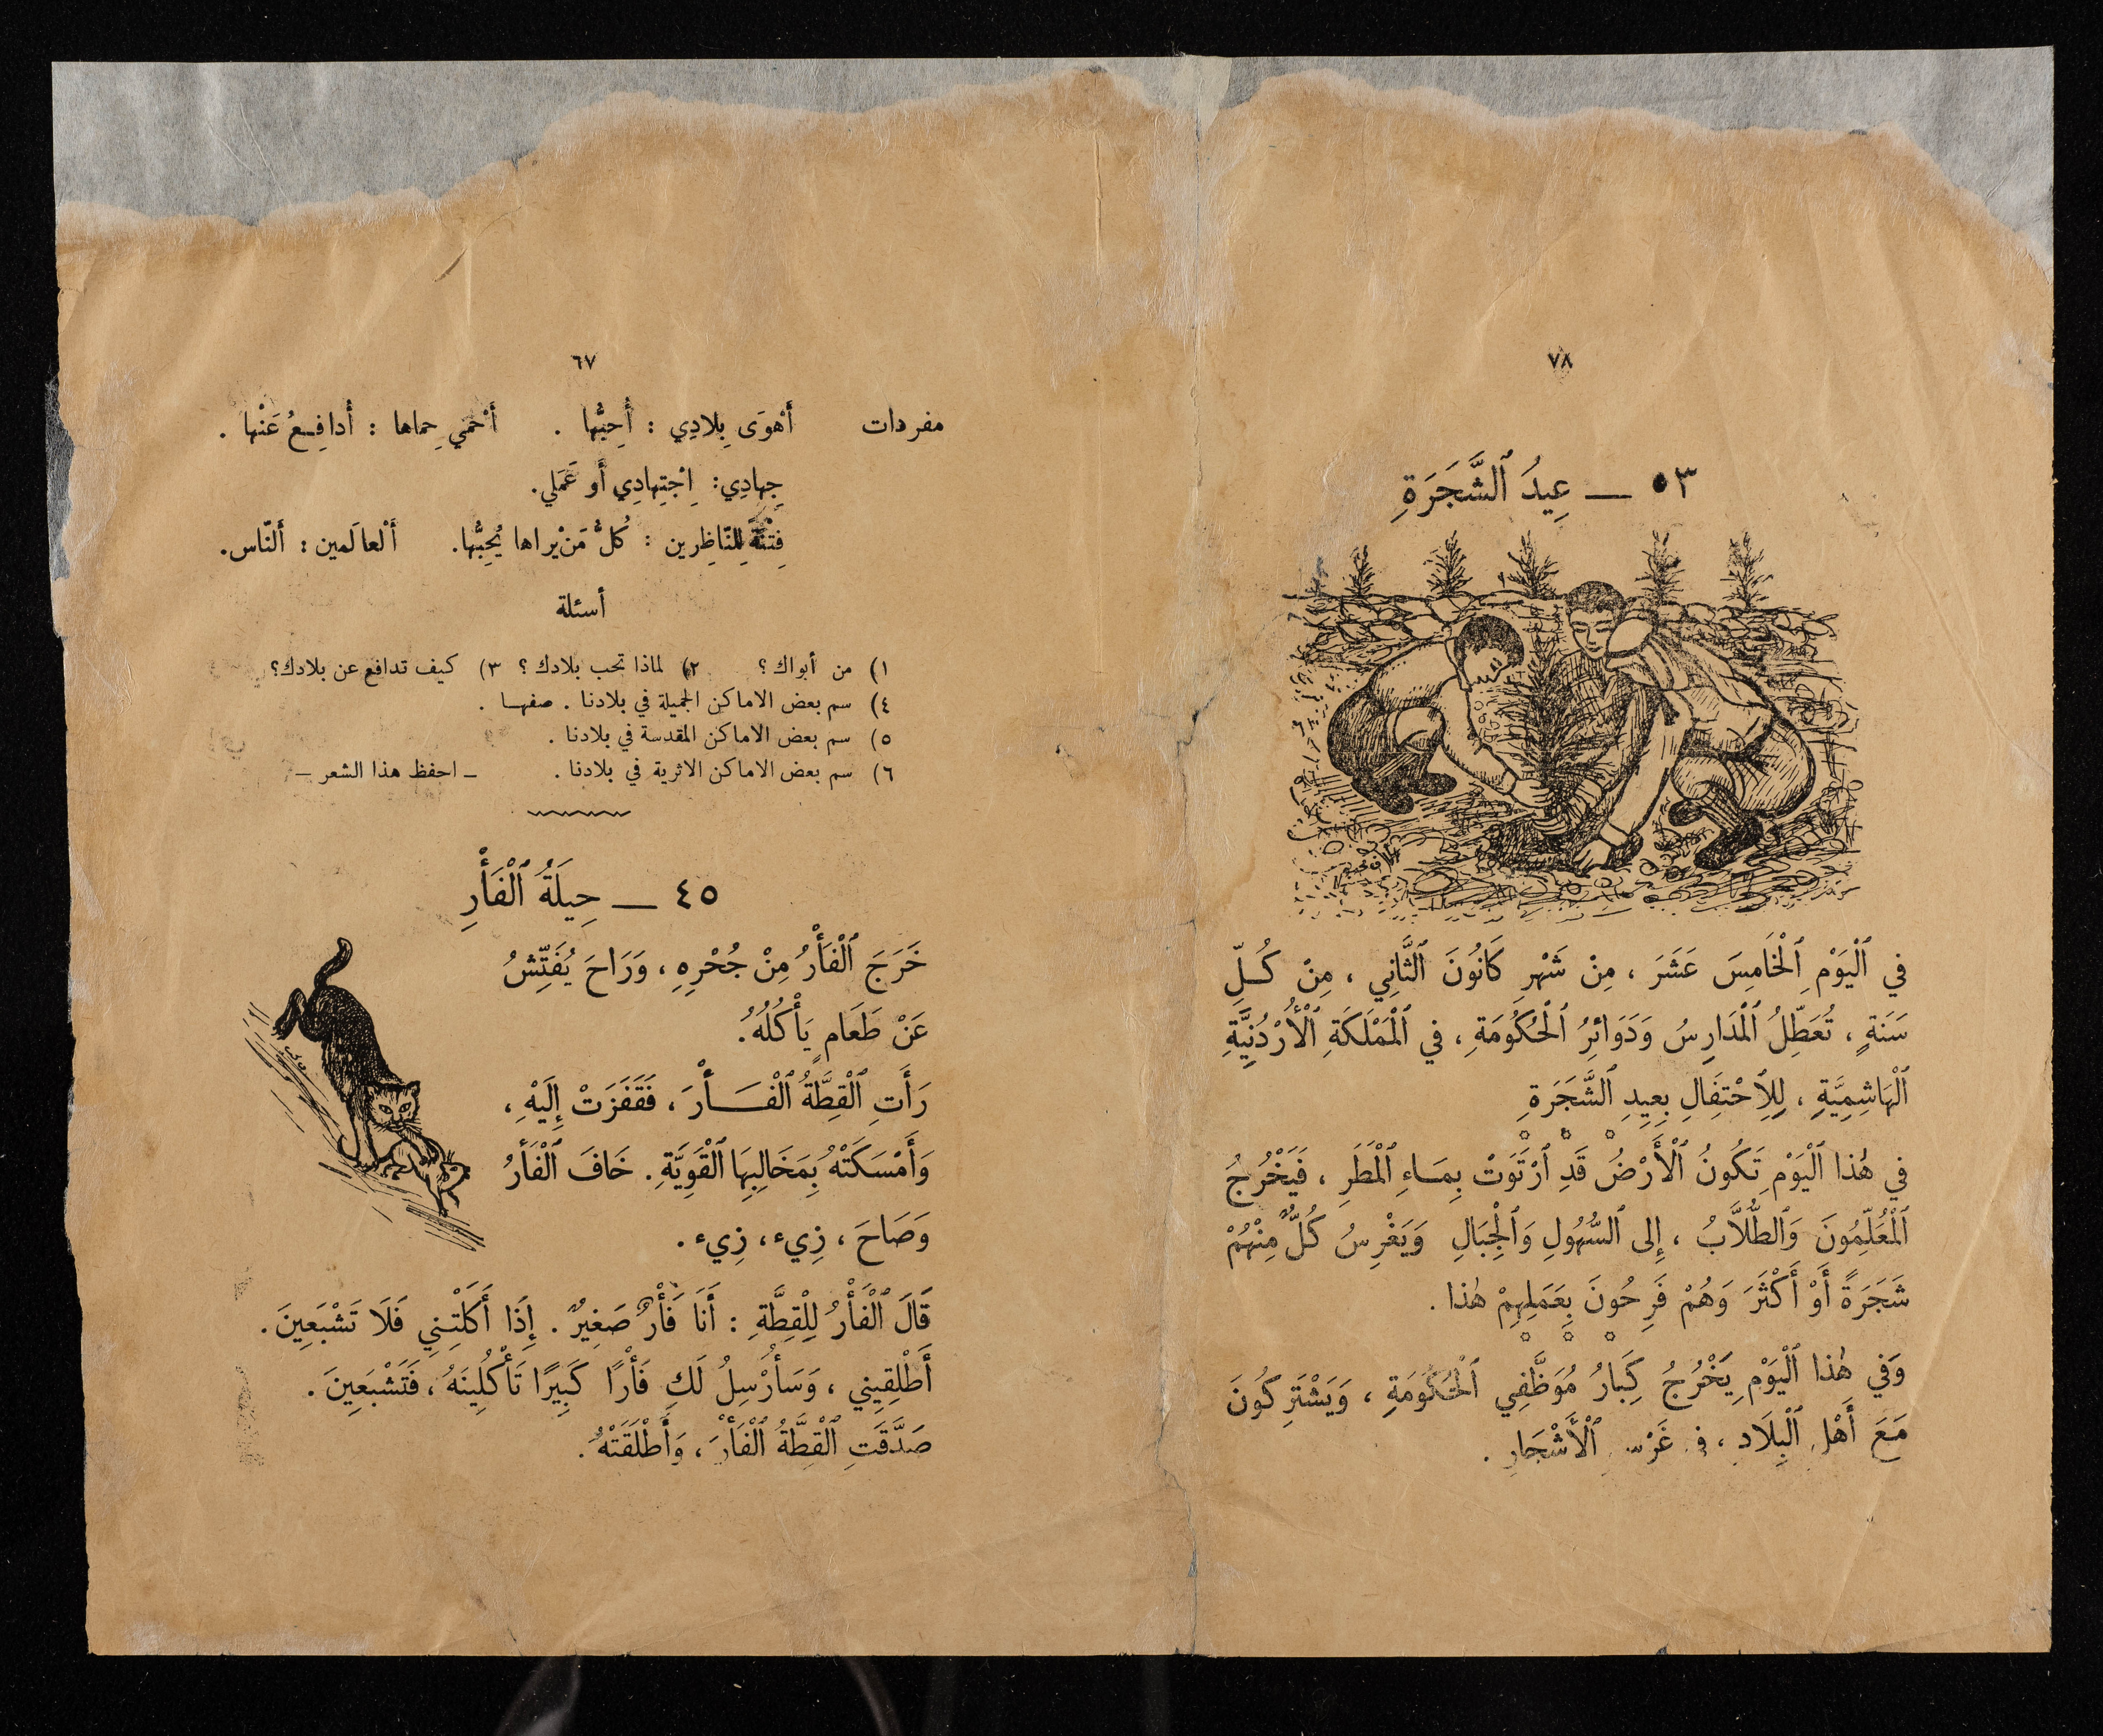 ٧٨
٥٣ — عِيدُ ٱلشَّجَرَةِ
في ٱلْيَوْمِ ٱلْخَامِسَ عَشَرَ ، مِنْ شَهْرِ كَانُونَ ٱلثَّانِي ، مِنْ كُلِّ
سَنَةٍ ، تُعَطِّلُ ٱلْمَدَارِسُ وَدَوَائِرُ ٱلْحُكُومَةِ ، في ٱلْمَمْلَكَةِ ٱلْأُرْدُنِيَّةِ
ٱلْهَاشِمِيَّةِ ، لِلِٱحْتِفَالِ بِعِيدِ ٱلشَّجَرَةِ
في هٰذا ٱلْيَوْمِ تَكُونُ ٱلْأَرْضُ قَدِ ٱرْتَوَتْ بِمَاءِ ٱلْمَطَرِ ، فَيَخْرُجُ
ٱلْمُعَلِّمُونَ وَٱلطُّلَّابُ ، إِلى ٱلسُّهُولِ وَٱلْجِبَالِ وَيَغْرِسُ كُلٌّ مِنْهُمْ
شَجَرَةً أَوْ أَكْثَرَ وَهُمْ فَرِحُونَ بِعَمَلِهِمْ هٰذا .
وَفي هٰذا ٱلْيَوْمِ يَخْرُجُ كِبَارُ مُوَظَّفِي ٱلْحُكُومَةِ ، وَيَشْتَرِكُونَ
مَعَ أَهْلِ ٱلْبِلَادِ ، في غَرْسِ ٱلْأَشْجَارِ .
٦٧
مفردات أَهْوَى بِلادِي : أُحِبُّها . أَحْمي حِماها : أُدافِعُ عَنْها .
جِهادِي : اِجْتِهادِي أَو عَمَلي .
فِتْنَةً لِلنّاظِرين : كُلُّ مَنْ يراها يُحِبُّها . أَلْعالَمين : أَلنّاس .
أسئلة
١) من أبواك ؟ ٢) لماذا تحب بلادك ؟ ٣) كيف تدافع عن بلادك؟
٤) سم بعض الاماكن الجميلة في بلادنا . صفها .
٥) سم بعض الاماكن المقدسة في بلادنا .
٦) سم بعض الاماكن الاثرية في بلادنا . – احفظ هذا الشعر –
٤٥ — حِيلَةُ ٱلْفَأْرِ
خَرَجَ ٱلْفَأْرُ مِنْ جُحْرِهِ ، وَرَاحَ يُفَتِّشُ
عَنْ طَعَامٍ يَأْكُلُهُ .
رَأَتِ ٱلْقِطَّةُ ٱلْفَأْرَ ، فَقَفَزَتْ إِلَيْهِ ،
وَأَمْسَكَتْهُ بِمَخَالِبِهَا ٱلْقَوِيَّةِ . خَافَ ٱلْفَأْرُ
وَصَاحَ ، زِيء ، زِيء .
قَالَ ٱلْفَأْرُ لِلْقِطَّةِ : أَنَا فَأْرٌ صَغِيرٌ . إِذَا أَكَلْتِنِي فَلَا تَشْبَعِينَ .
أَطْلِقِينِي ، وَسَأُرْسِلُ لَكِ فَأْرًا كَبِيرًا تَأْكُلِينَهُ ، فَتَشْبَعِينَ .
صَدَّقَتِ ٱلْقِطَّةُ ٱلْفَأْرَ ، وَأَطْلَقَتْهُ .